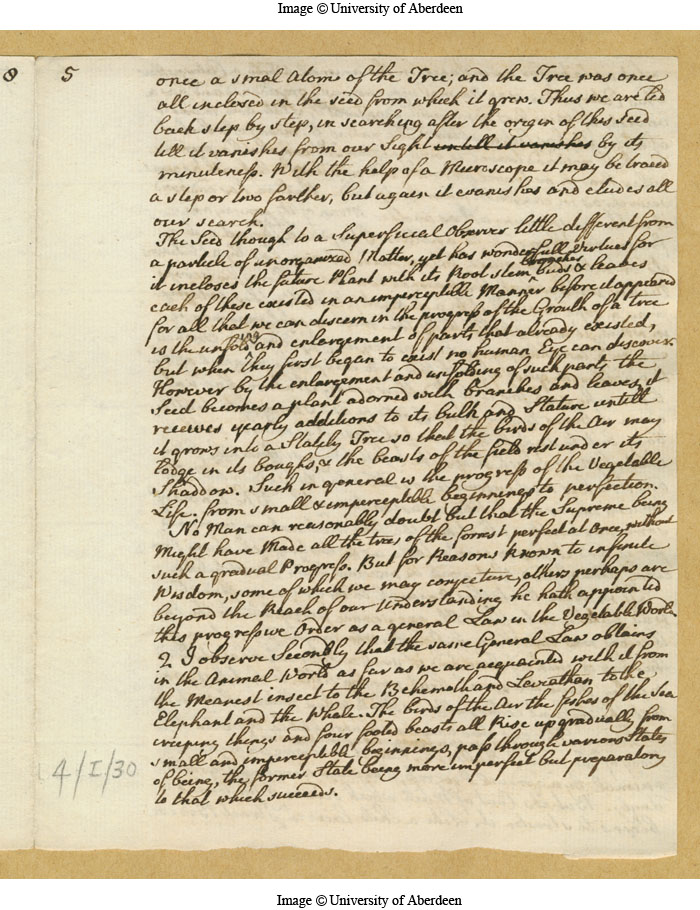 Image © University of Aberdeen
8
5
once a smal atom of the Tree; and the Tree was once
all inclosed in the seed from which it grew. Thus we are led
back step by step, in searching after the origin of this Seed
till it vanishes from our Sight untill it vanishes by its
minuteness. With the help of a Microscope it may be traced
a step or two farther, but again it evanishes and eludes all
our search.
The Seed though to a Superficial Observer little different from
a particle of unorganized Matter, yet has wonderfull Virtues for
branches
it incloses the future Plant with its Root stem buds & leaves
each of these existed in an imperceptible Manner before it appeared
for all that we can discern in the progress of the Grouth of a tree
is the unfolding and enlargement of parts that already existed,
but when they first began to exist no human Eye can discover.
However by the enlargement and unfolding of such parts the
Seed becomes a plant adorned with branches and leaves, it
receives yearly additions to its bulk and Stature untill
it grows into a Stately Tree so that the birds of the Air may
lodge in its boughs, & the beasts of the field rest under its
Shaddow. Such in general is the progress of the Vegetable
Life. from small & imperceptible beginnings to perfection.
No Man can reasonably doubt but that the Supreme being
Might have Made all the trees of the forrest perfect at Once, without
such a gradual Progress. But for Reasons known to infinite
Wisdom, some of which we may conjecture, others perhaps are
beyond the Reach of our Understanding, he hath appointed
this progressive Order as a general Law in the Vegetable World.
2 I observe Secondly that the same General Law obtains
in the Animal World as far as we are acquainted with it from
the Meanest insect to the Behemoth and Leviathan to the
Elephant and the Whale. The birds of the Air the fishes of the Sea
creeping things and four footed beasts all Rise up gradually from
small and imperceptible beginnings, pass through various States
of being, the former State being more imperfect but preparatory
to that which succeeds.
4/I/30
Image © University of Aberdeen